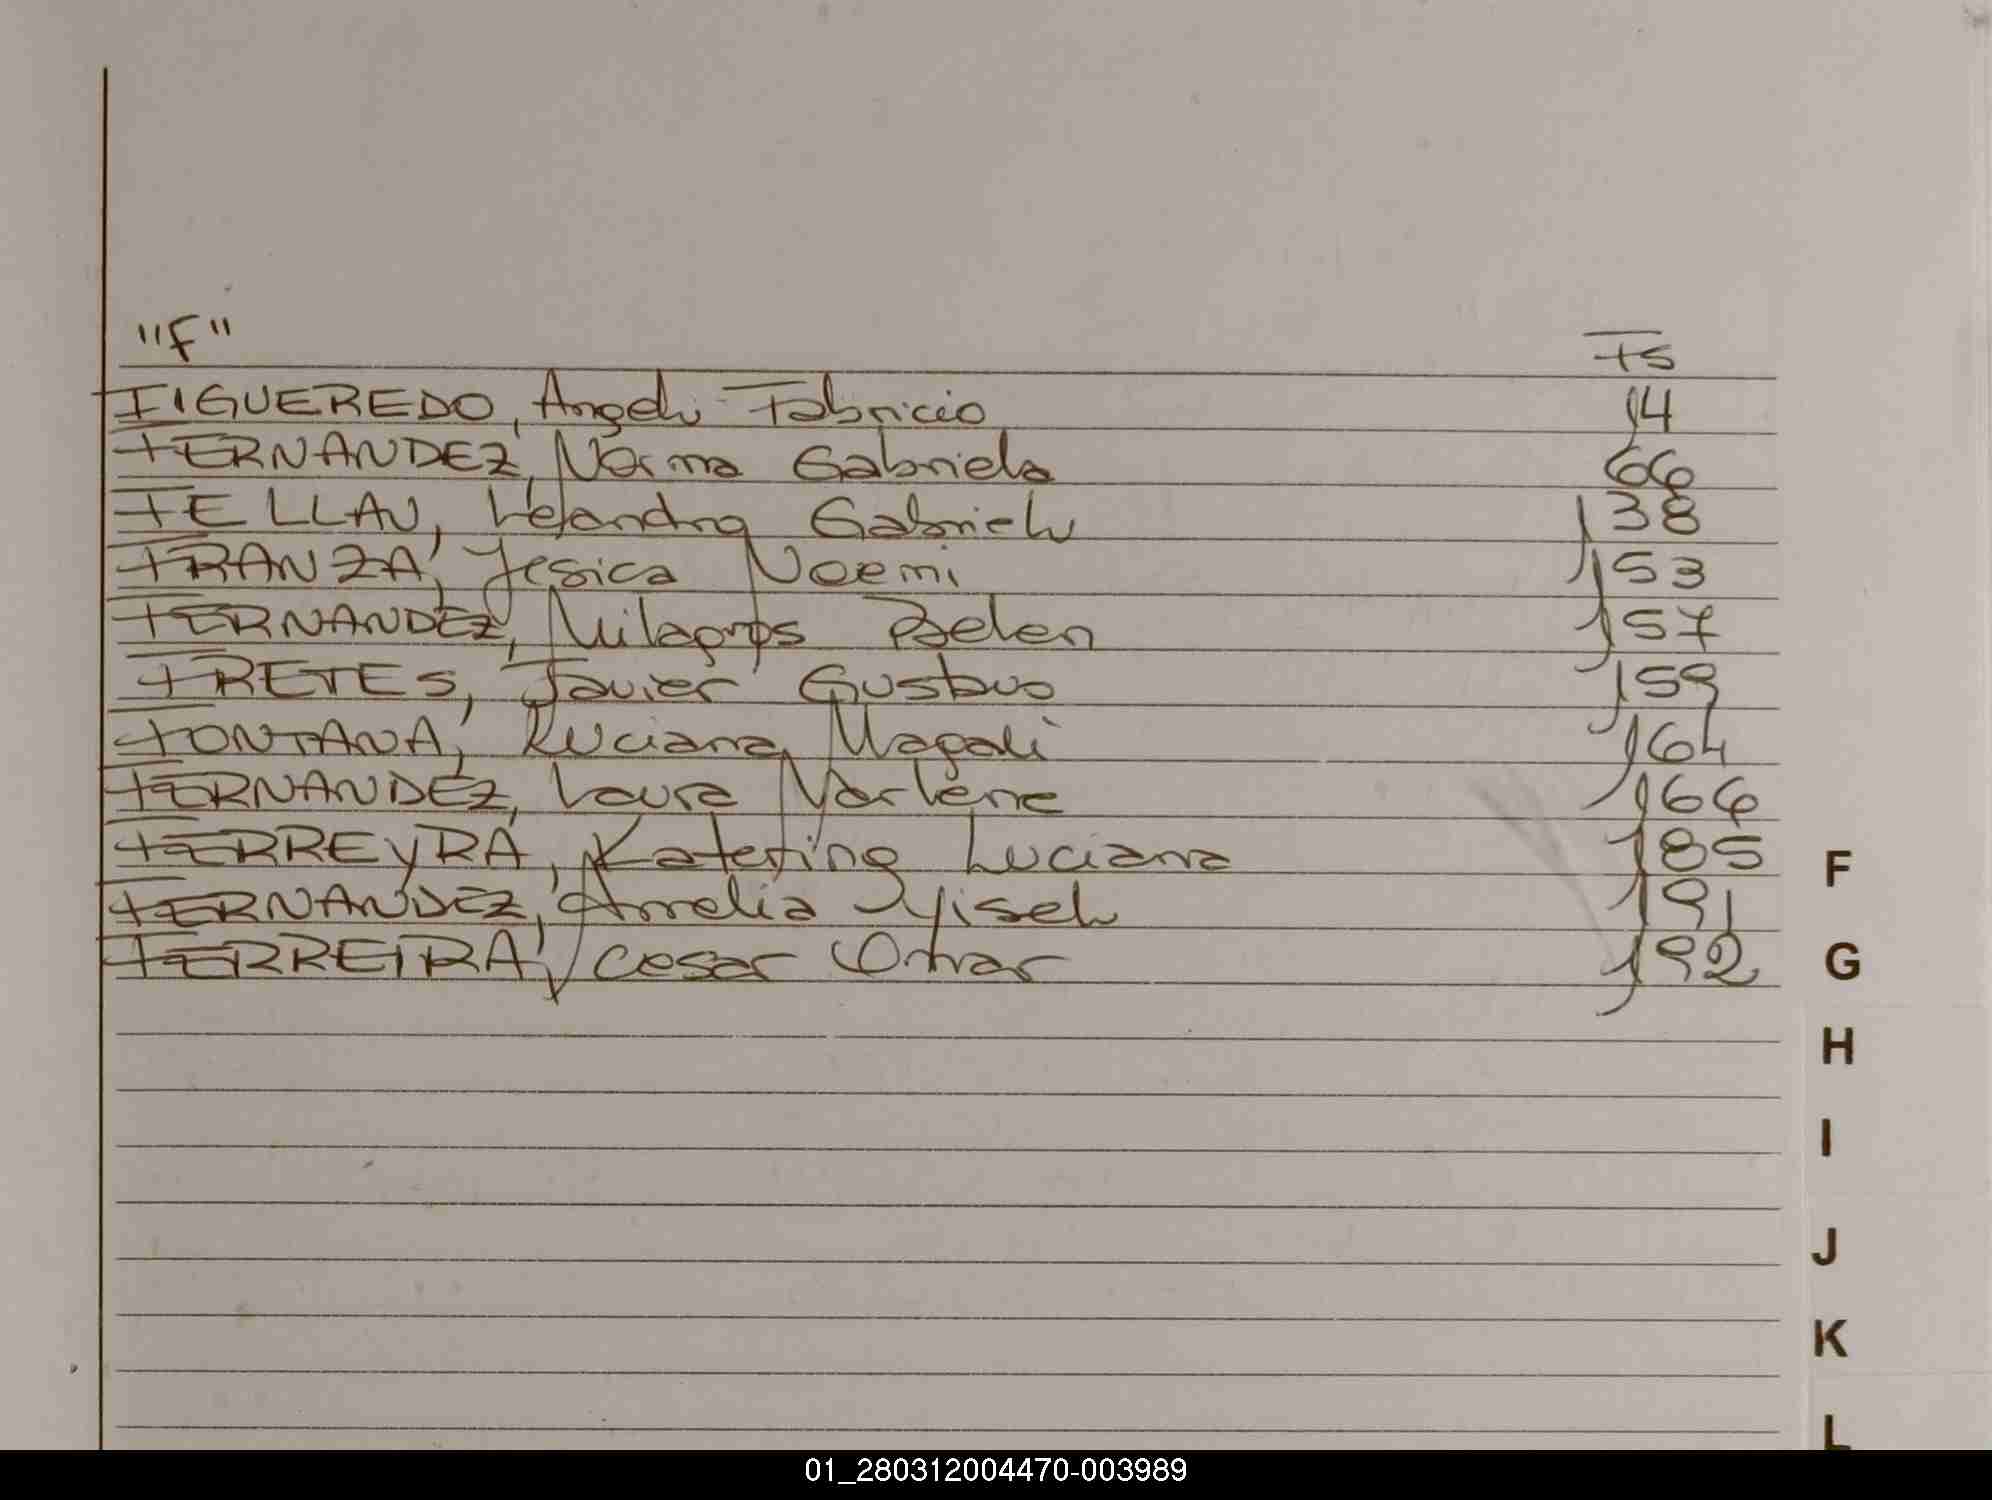 "F" Fs
FIGUEREDO, Angel Fabricio 14
FERNANDEZ, Norma Gabriela 66
FELLAU, Lejandro Gabriel 138
FRANZA, Jesica Noemi 153
FERNANDEZ, Milagros Belen 157
FRETES, Javier Gustavo 159
FONTANA, Luciana Magali 164
FERNANDEZ, Laura Marlene 166
FERREYRA, Katering Luciana 185
FERNANDEZ, Amelia Yisel 191
FERREIRA, Cesar Omar 192
F
G
H
I
J
K
L
01_280312004470-003989